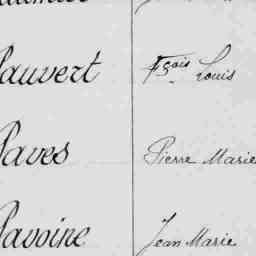 Pauvert Fçois Louis
Paves Pierre Marie
Pavoine Jean Marie